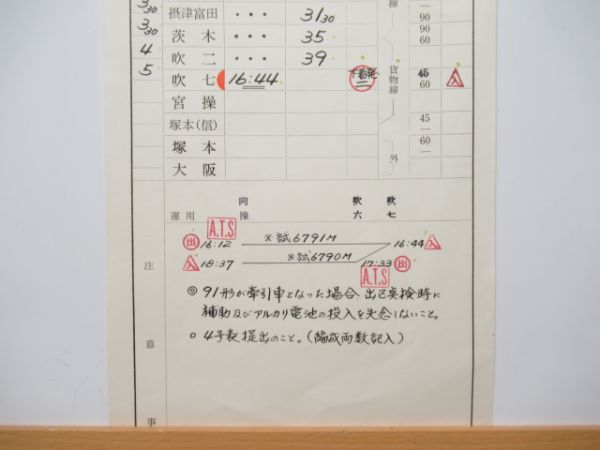 3 30 摂津富田 ・・・ 31 30 線 90
3 30 茨木 ・・・ 35 90 60
4 吹二 ・・・ 39
5 吹七 16:44 二 貨物線 45 60 入
宮操
塚本(信) 45
塚本 60
大阪 外
運用 向操 吹六 吹七
A.T.S
出 16:12 ※試6791M 16:44 入
入 18:37 ※試6790M 17:33 出
A.T.S
注意事
◎ 91形が牽引車となった場合、出区実検時に
補助及びアルカリ電池の投入を失念しないこと。
○ 4号表提出のこと。(編成両数記入)